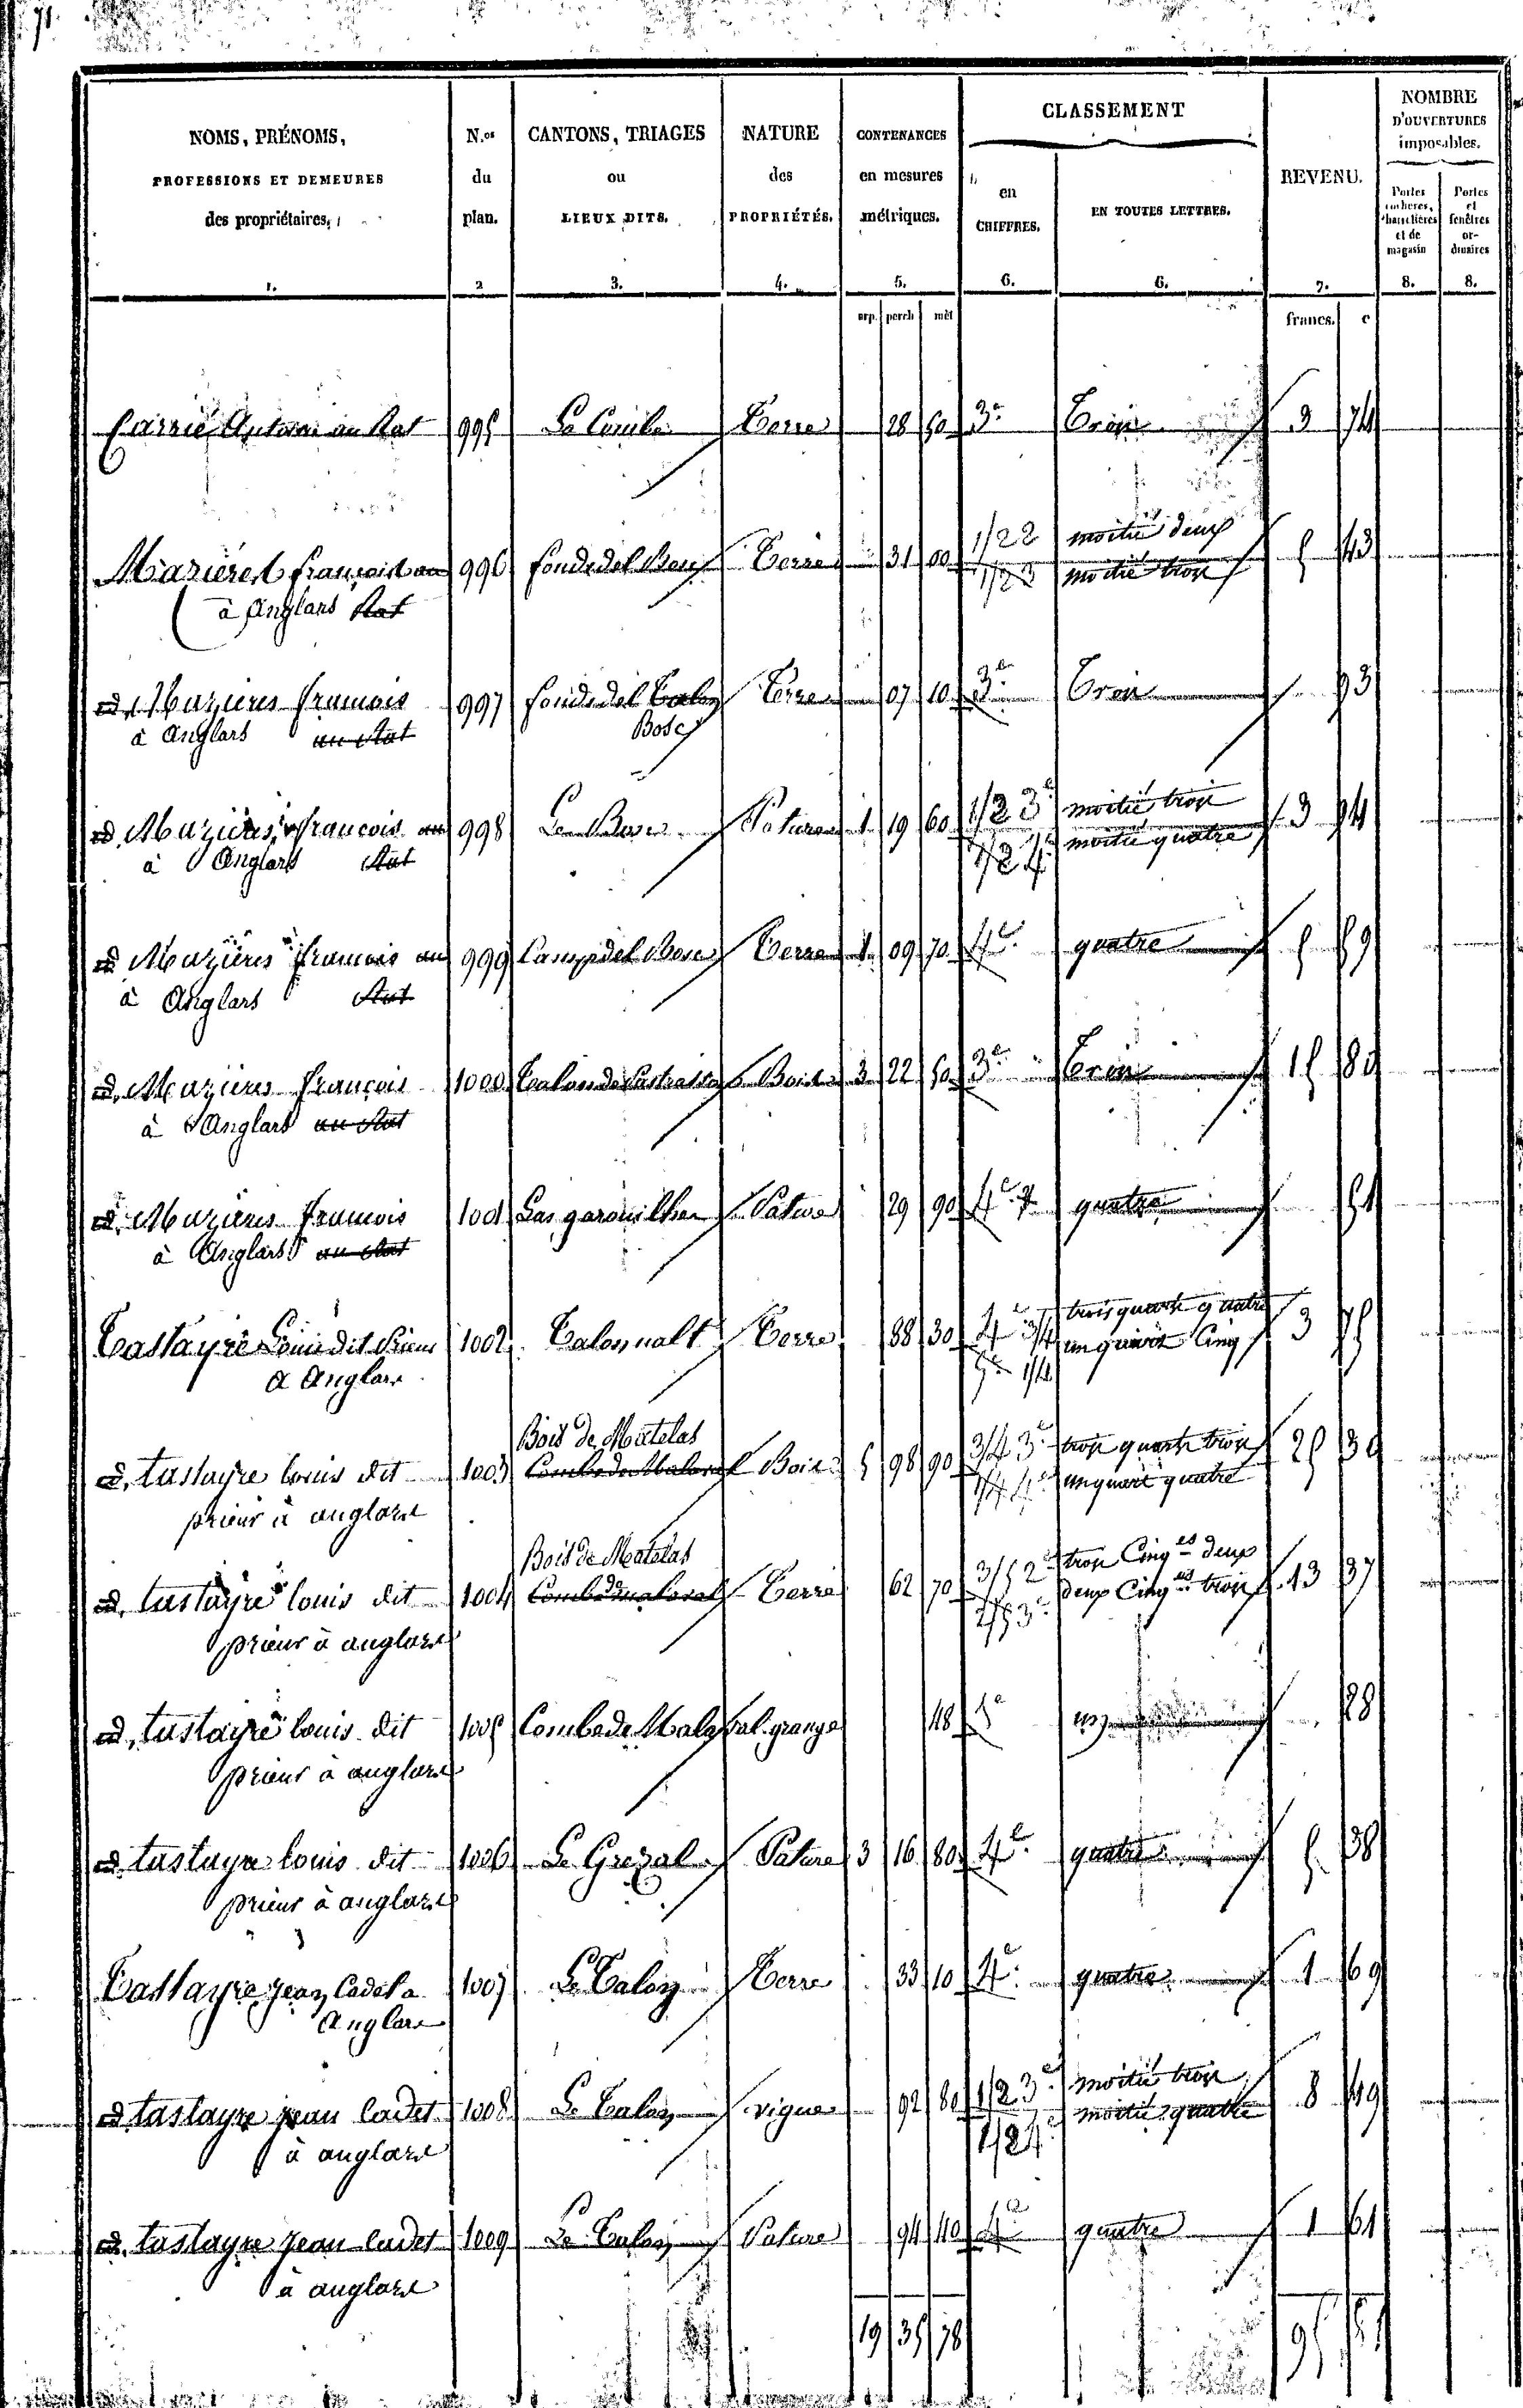 71
NOMS, PRÉNOMS, PROFESSIONS ET DEMEURES des propriétaires. 1.
N.os du plan. 2
CANTONS, TRIAGES ou LIEUX DITS. 3.
NATURE des PROPRIÉTÉS. 4.
CONTENANCES en mesures métriques. 5.
CLASSEMENT
en CHIFFRES. 6.
EN TOUTES LETTRES. 6.
REVENU. 7.
NOMBRE D'OUVERTURES imposables.
Portes cochères, charretières et de magasin 8.
Portes et fenêtres ordinaires 8.
arp. perch mèt francs. c
Carrié Antoine au Rat 995 La Combe Terre 28 50 3e Trois 3 74
Mazières françois au 996 fonds del Bosc Terre 31 00 1/2 2 moitié deux 5 43
à Anglars Rat 1/2 3 moitié trois
id. Mazieres francois 997 fonds del Talou Terre 07 10 3e Trois 93
à Anglars au Rat Bosc
id. Mazières francois au 998 Le Bosc Pature 1 19 60 1/2 3e moitié trois 3 94
à Anglars Rat 1/2 4e moitié quatre
id. Mazières francois au 999 Camp del Bosc Terre 1 09 70 4e quatre 5 59
à Anglars Rat
id. Mazieres françois 1000 Bois 3 22 50 3e Trois 15 80
à Anglars au Rat
id. Mazieres francois 1001 Las garouilhes Pature 29 90 4e quatre 51
à Anglars au Rat
Tastayre Louis dit Prieur 1002 Talou nalt Terre 88 30 4e 3/4 trois quarts quatre 3 75
a Anglars 5e 1/4 un quart Cinq
Bois de Matelas
id. tastayre louis dit 1003 Combe de Malaval Bois 5 98 90 3/4 3e trois quarts trois 25 30
prieur à anglars 1/4 4e un quart quatre
Bois de Matelas
id. tastayre louis dit 1004 Combe de malaval Terre 62 70 3/5 2e trois Cinqes deux 13 37
prieur à anglars 2/5 3e deux Cinqes trois
id. tastayre louis dit 1005 Combe de Malaval grange 48 1e un 28
prieur à anglars
id. tastayre louis dit 1006 Le Grezal Pature 3 16 80 4e quatre 5 38
prieur à anglars
Tastayre jean Cadet a 1007 Le Talou Terre 33 10 4e quatre 1 69
Anglars
id. tastayre jean Cadet 1008 Le Talou vigne 92 80 1/2 3e moitié trois 8 49
à anglars 1/2 4e moitié quatre
id. tastayre jean Cadet 1009 Le Talou Pature 94 40 4e quatre 1 61
à anglars
19 35 78 95 81